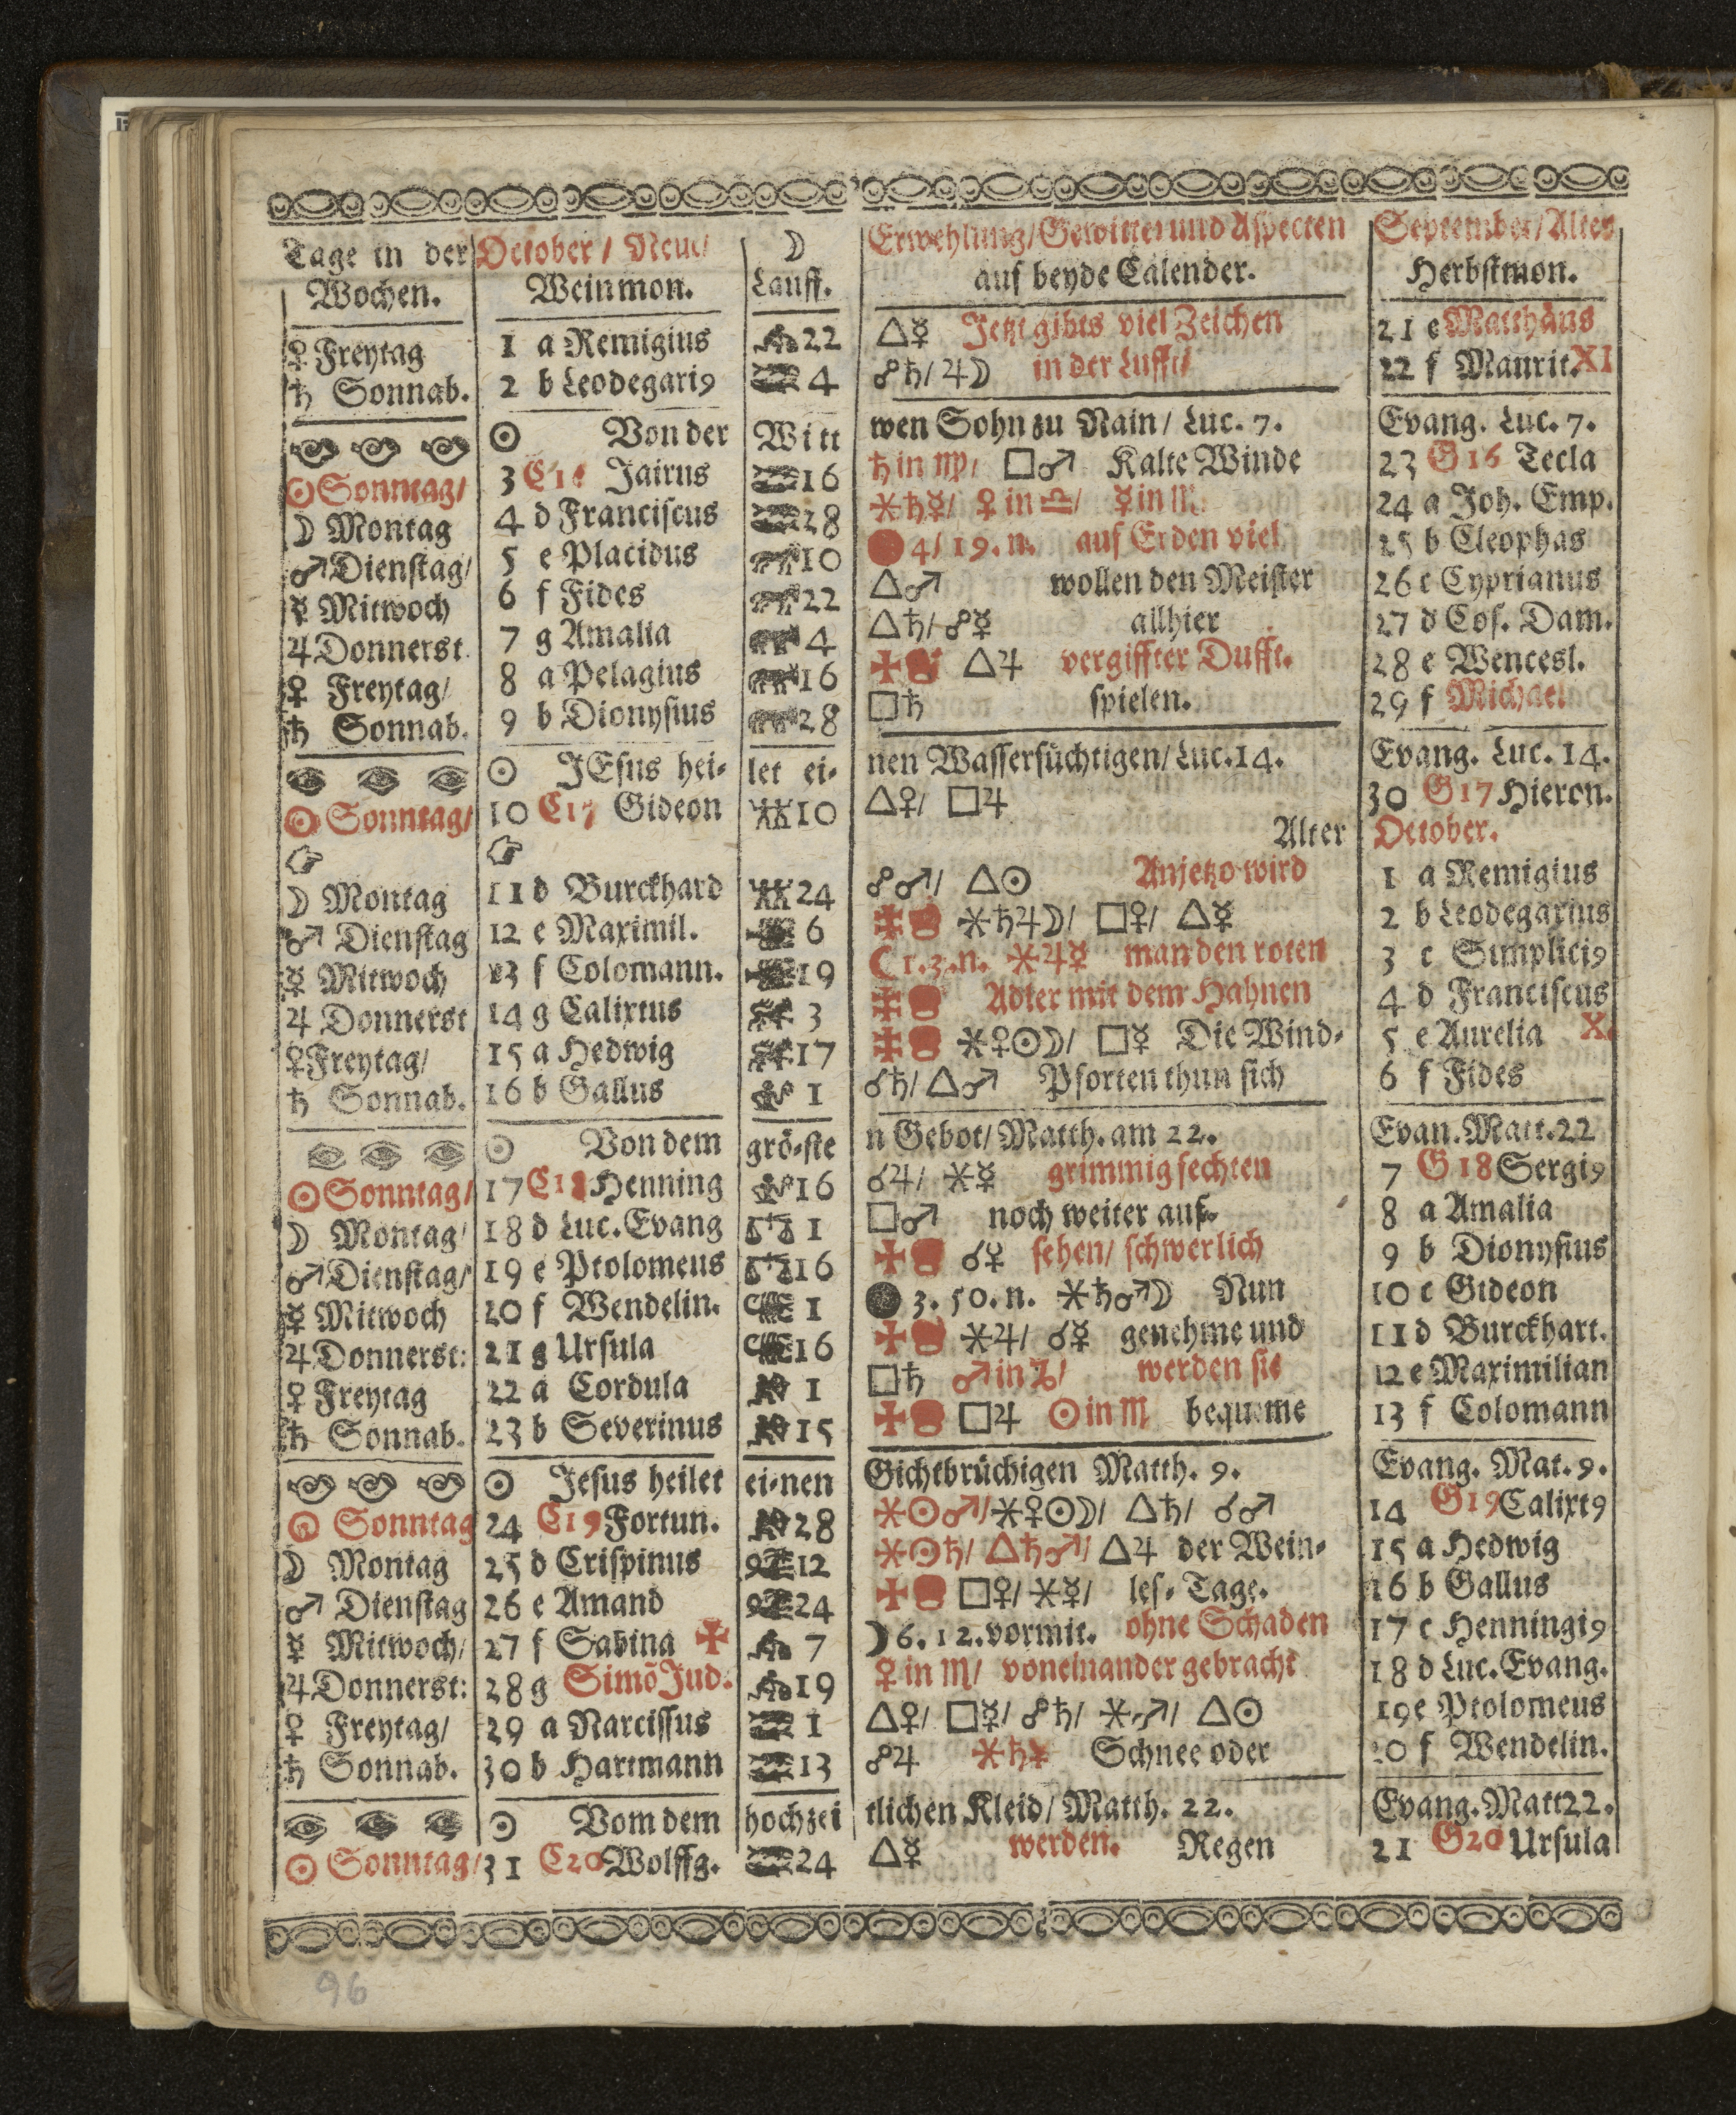 Tage in der October / Neue/ ☽ Erwehlung/Gewitter und Aspecten September/Altes
Wochen. Weinmon. Lauff. auf beyde Calender. Herbstmon.
♀ Freytag 1 a Remigius 22 △☿ Jetzt gibts viel Zeichen 21 e Matthäus
♄ Sonnab. 2 b Leodegari9 4 ☍♄/ ♃☽ in der Lufft/ 22 f Maurit. XI
☉ Von der Witt wen Sohn zu Nain/ Luc. 7. Evang. Luc. 7.
☉ Sonntag/ 3 Jairus 16 ♄ in ♍/ □♂ Kalte Winde 23 G16 Tecla
☽ Montag 4 d Franciscus 28 ⚹♄☿/ ♀ in ♎/ ☿ in ♏ 24 a Joh. Emp.
♂ Dienstag/ 5 e Placidus 10 4/ 19. n. auf Erden viel 25 b Cleophas
☿ Mitwoch 6 f Fides 22 △♂ wollen den Meister 26 c Cyprianus
♃ Donnerst. 7 g Amalia 4 △♄/ ☍☿ allhier 27 d Cos. Dam.
♀ Freytag/ 8 a Pelagius 16 ✠ △♃ vergiffter Dufft. 28 e Wencesl.
♄ Sonnab. 9 b Dionysius 28 □♄ spielen. 29 f Michael
☉ JEsus hei- let ei- nen Wassersüchtigen/ Luc. 14. Evang. Luc. 14.
☉ Sonntag/ 10 C17 Gideon 10 △♀/ □♃ 30 G17 Hieron.
☞ ☞ Alter October.
☽ Montag 11 d Burckhard 24 ☍♂/ △☉ Anjetzo wird 1 a Remigius
♂ Dienstag 12 e Maximil. 6 ✠ ⚹♄♃☽/ □♀/ △☿ 2 b Leodegarius
☿ Mitwoch 13 f Colomann. 19 ☾ 1. 3. n. ⚹♃☿ man den roten 3 c Simplici9
♃ Donnerst 14 g Calixtus 3 ✠ Adler mit dem Hahnen 4 d Franciscus
♀ Freytag/ 15 a Hedwig 17 ✠ ⚹♀☉☽/ □☿ Die Wind- 5 e Aurelia X.
♄ Sonnab. 16 b Gallus 1 ☌♄/ △♂ Pforten thun sich 6 f Fides
☉ Von dem grö-ste n Gebot/ Matth. am 22. Evan. Matt. 22
☉ Sonntag/ 17 C18 Henning 16 ☌♃/ ⚹☿ grimmig fechten 7 G18 Sergi9
☽ Montag/ 18 d Luc. Evang 1 □♂ noch weiter auf- 8 a Amalia
♂ Dienstag/ 19 e Ptolomeus 16 ✠ ☌♀ sehen/ schwerlich 9 b Dionysius
☿ Mitwoch 20 f Wendelin. 1 ● 3. 50. n. ⚹♄♂☽ Nun 10 c Gideon
♃ Donnerst: 21 g Ursula 16 ✠ ⚹♃/ ☌☿ genehme und 11 d Burckhart.
♀ Freytag 22 a Cordula 1 □♄ ♂ in ♑/ werden sie 12 e Maximilian
♄ Sonnab. 23 b Severinus 15 ✠ □♃ ☉ in ♏ bequeme 13 f Colomann
☉ Jesus heilet ei-nen Gichtbrüchigen Matth. 9. Evang. Mat. 9.
☉ Sonntag 24 C19 Fortun. 28 ⚹☉♂/ ⚹♀☉☽/ △♄/ ☌♂ 14 G19 Calixt9
☽ Montag 25 d Crispinus 12 ⚹☉♄/ △♄♂/ △♃ der Wein- 15 a Hedwig
♂ Dienstag 26 e Amand 24 ✠ □♀/ ⚹☿/ les- Tage. 16 b Gallus
☿ Mitwoch/ 27 f Sabina ✠ 7 ☽ 6. 12. vormit. ohne Schaden 17 c Henningi9
♃ Donnerst: 28 g Simõ Jud. 19 ♀ in ♏/ voneinander gebracht 18 d Luc. Evang.
♀ Freytag/ 29 a Narcissus 1 △♀/ □☿/ ☍♄/ ⚹♂/ △☉ 19 e Ptolomeus
♄ Sonnab. 30 b Hartmann 13 ☍♃ ⚹♄☿ Schnee oder 20 f Wendelin.
☉ Vom dem hochzei tlichen Kleid/ Matth. 22. Evang. Matt 22.
☉ Sonntag/ 31 C20 Wolffg. 24 △☿ werden. Regen 21 G20 Ursula
96